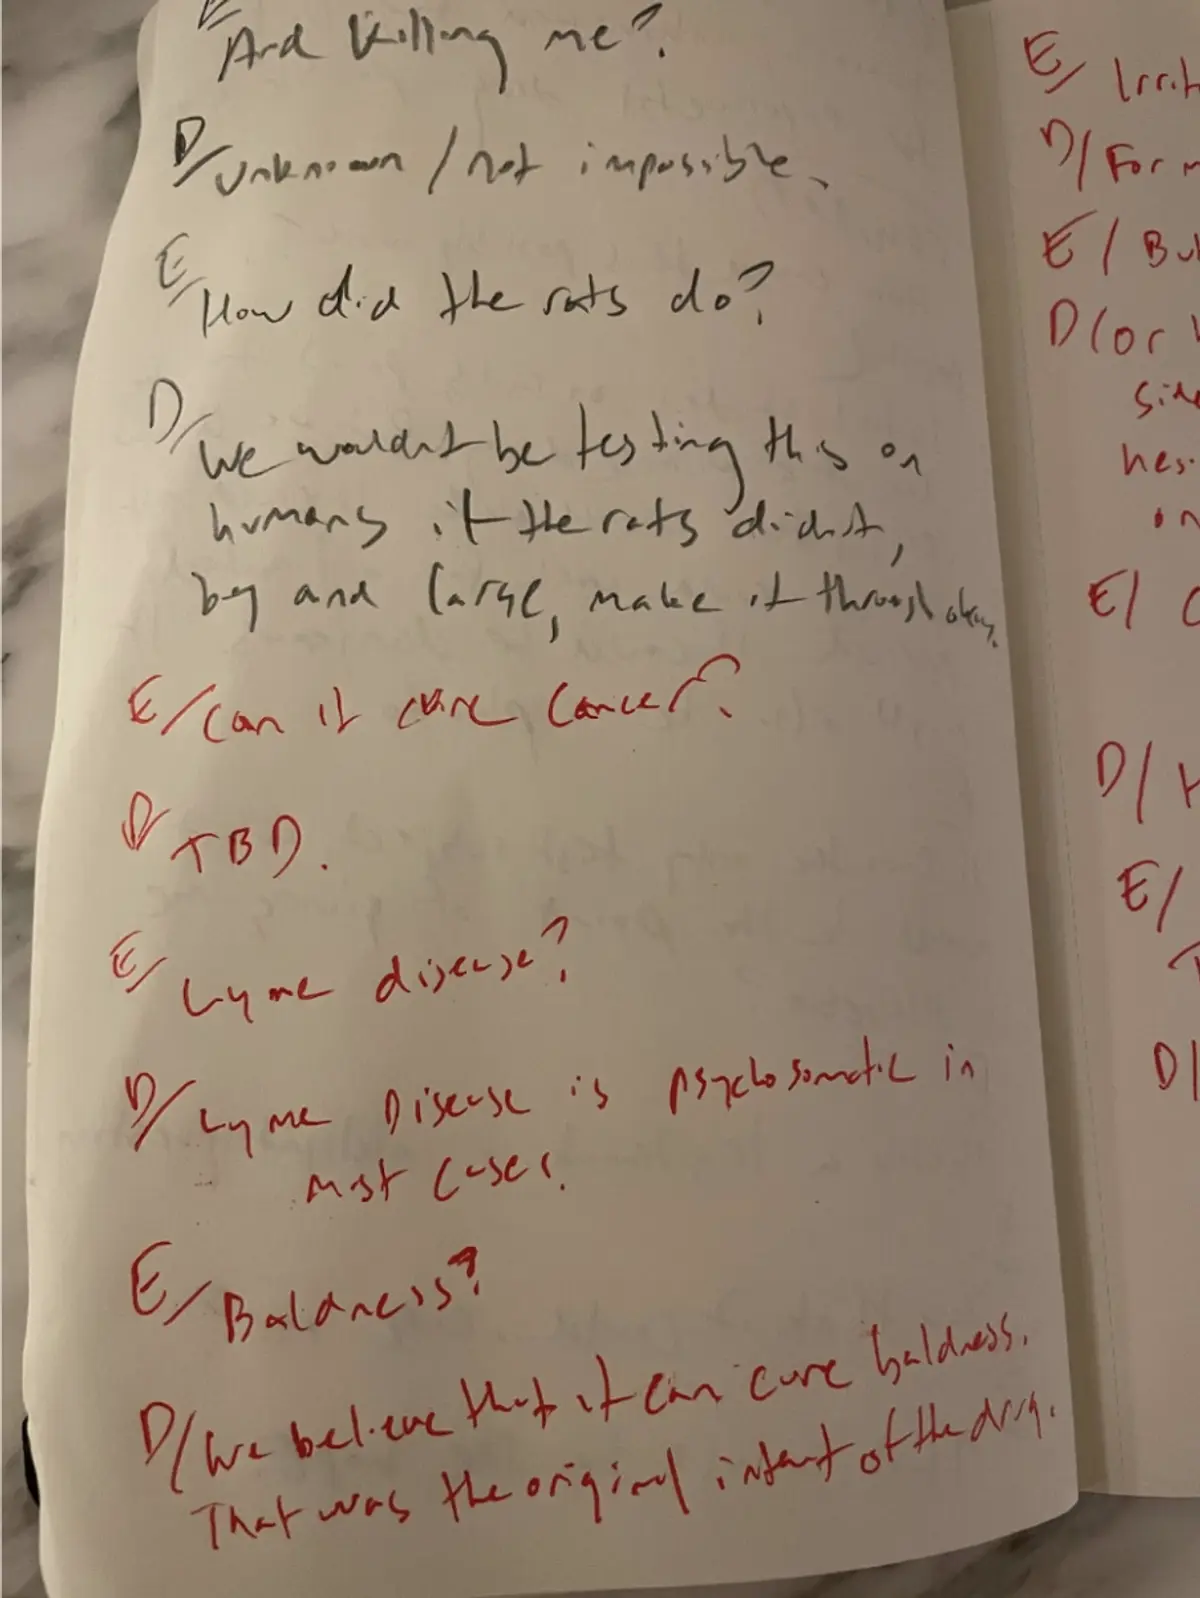 E/
And killing me?
D/ unknown / not impossible.
E/ How did the rats do?
D/ We wouldn't be testing this on
humans if the rats didn't,
by and large, make it through okay.
E/ Can it cure cancer?
D/ TBD.
E/ Lyme disease?
D/ Lyme Disease is psychosomatic in
most cases.
E/ Baldness?
D/ We believe that it can cure baldness.
That was the original intent of the drug.
E/ Irrit
D/ For m
E/ Bu
D/ or
side
hes
on
E/ C
D/ H
E/
T
D/